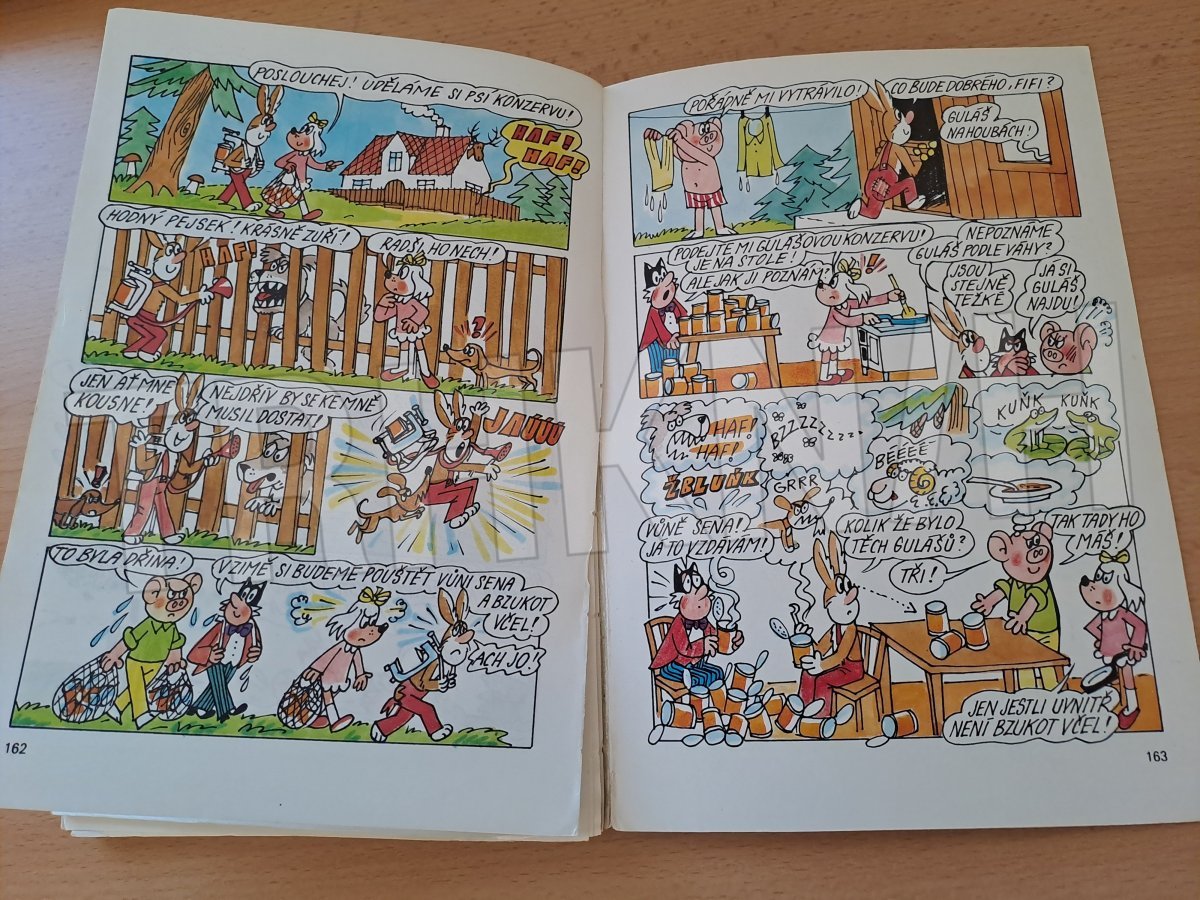 POSLOUCHEJ! UDĚLÁME SI PSÍ KONZERVU!
HAF!
HAF!
HODNÝ PEJSEK! KRÁSNĚ ZUŘÍ!
HAF!
RADŠI HO NECH!
JEN AŤ MNE
KOUSNE!
NEJDŘÍV BY SE KE MNĚ
MUSIL DOSTAT!
JAÚÚÚ
TO BYLA DŘINA!
V ZIMĚ SI BUDEME POUŠTĚT VŮNI SENA
A BZUKOT
VČEL!
ACH JO!
162
POŘÁDNĚ MI VYTRÁVILO!
CO BUDE DOBRÉHO, FIFI?
GULÁŠ
NA HOUBÁCH!
PODEJTE MI GULÁŠOVOU KONZERVU!
JE NA STOLE!
ALE JAK JI POZNÁM?
NEPOZNÁME
GULÁŠ PODLE VÁHY?
JSOU
STEJNĚ
TĚŽKÉ
JÁ SI
GULÁŠ
NAJDU!
HAF!
HAF!
ŽBLUŇK
BZZZZZZZZ
GRRR
BÉÉÉÉ
KUŇK KUŇK
VŮNĚ SENA!
JÁ TO VZDÁVÁM!
KOLIK ŽE BYLO
TĚCH GULÁŠŮ?
TŘI!
TAK TADY HO
MÁŠ!
JEN JESTLI UVNITŘ
NENÍ BZUKOT VČEL!
163